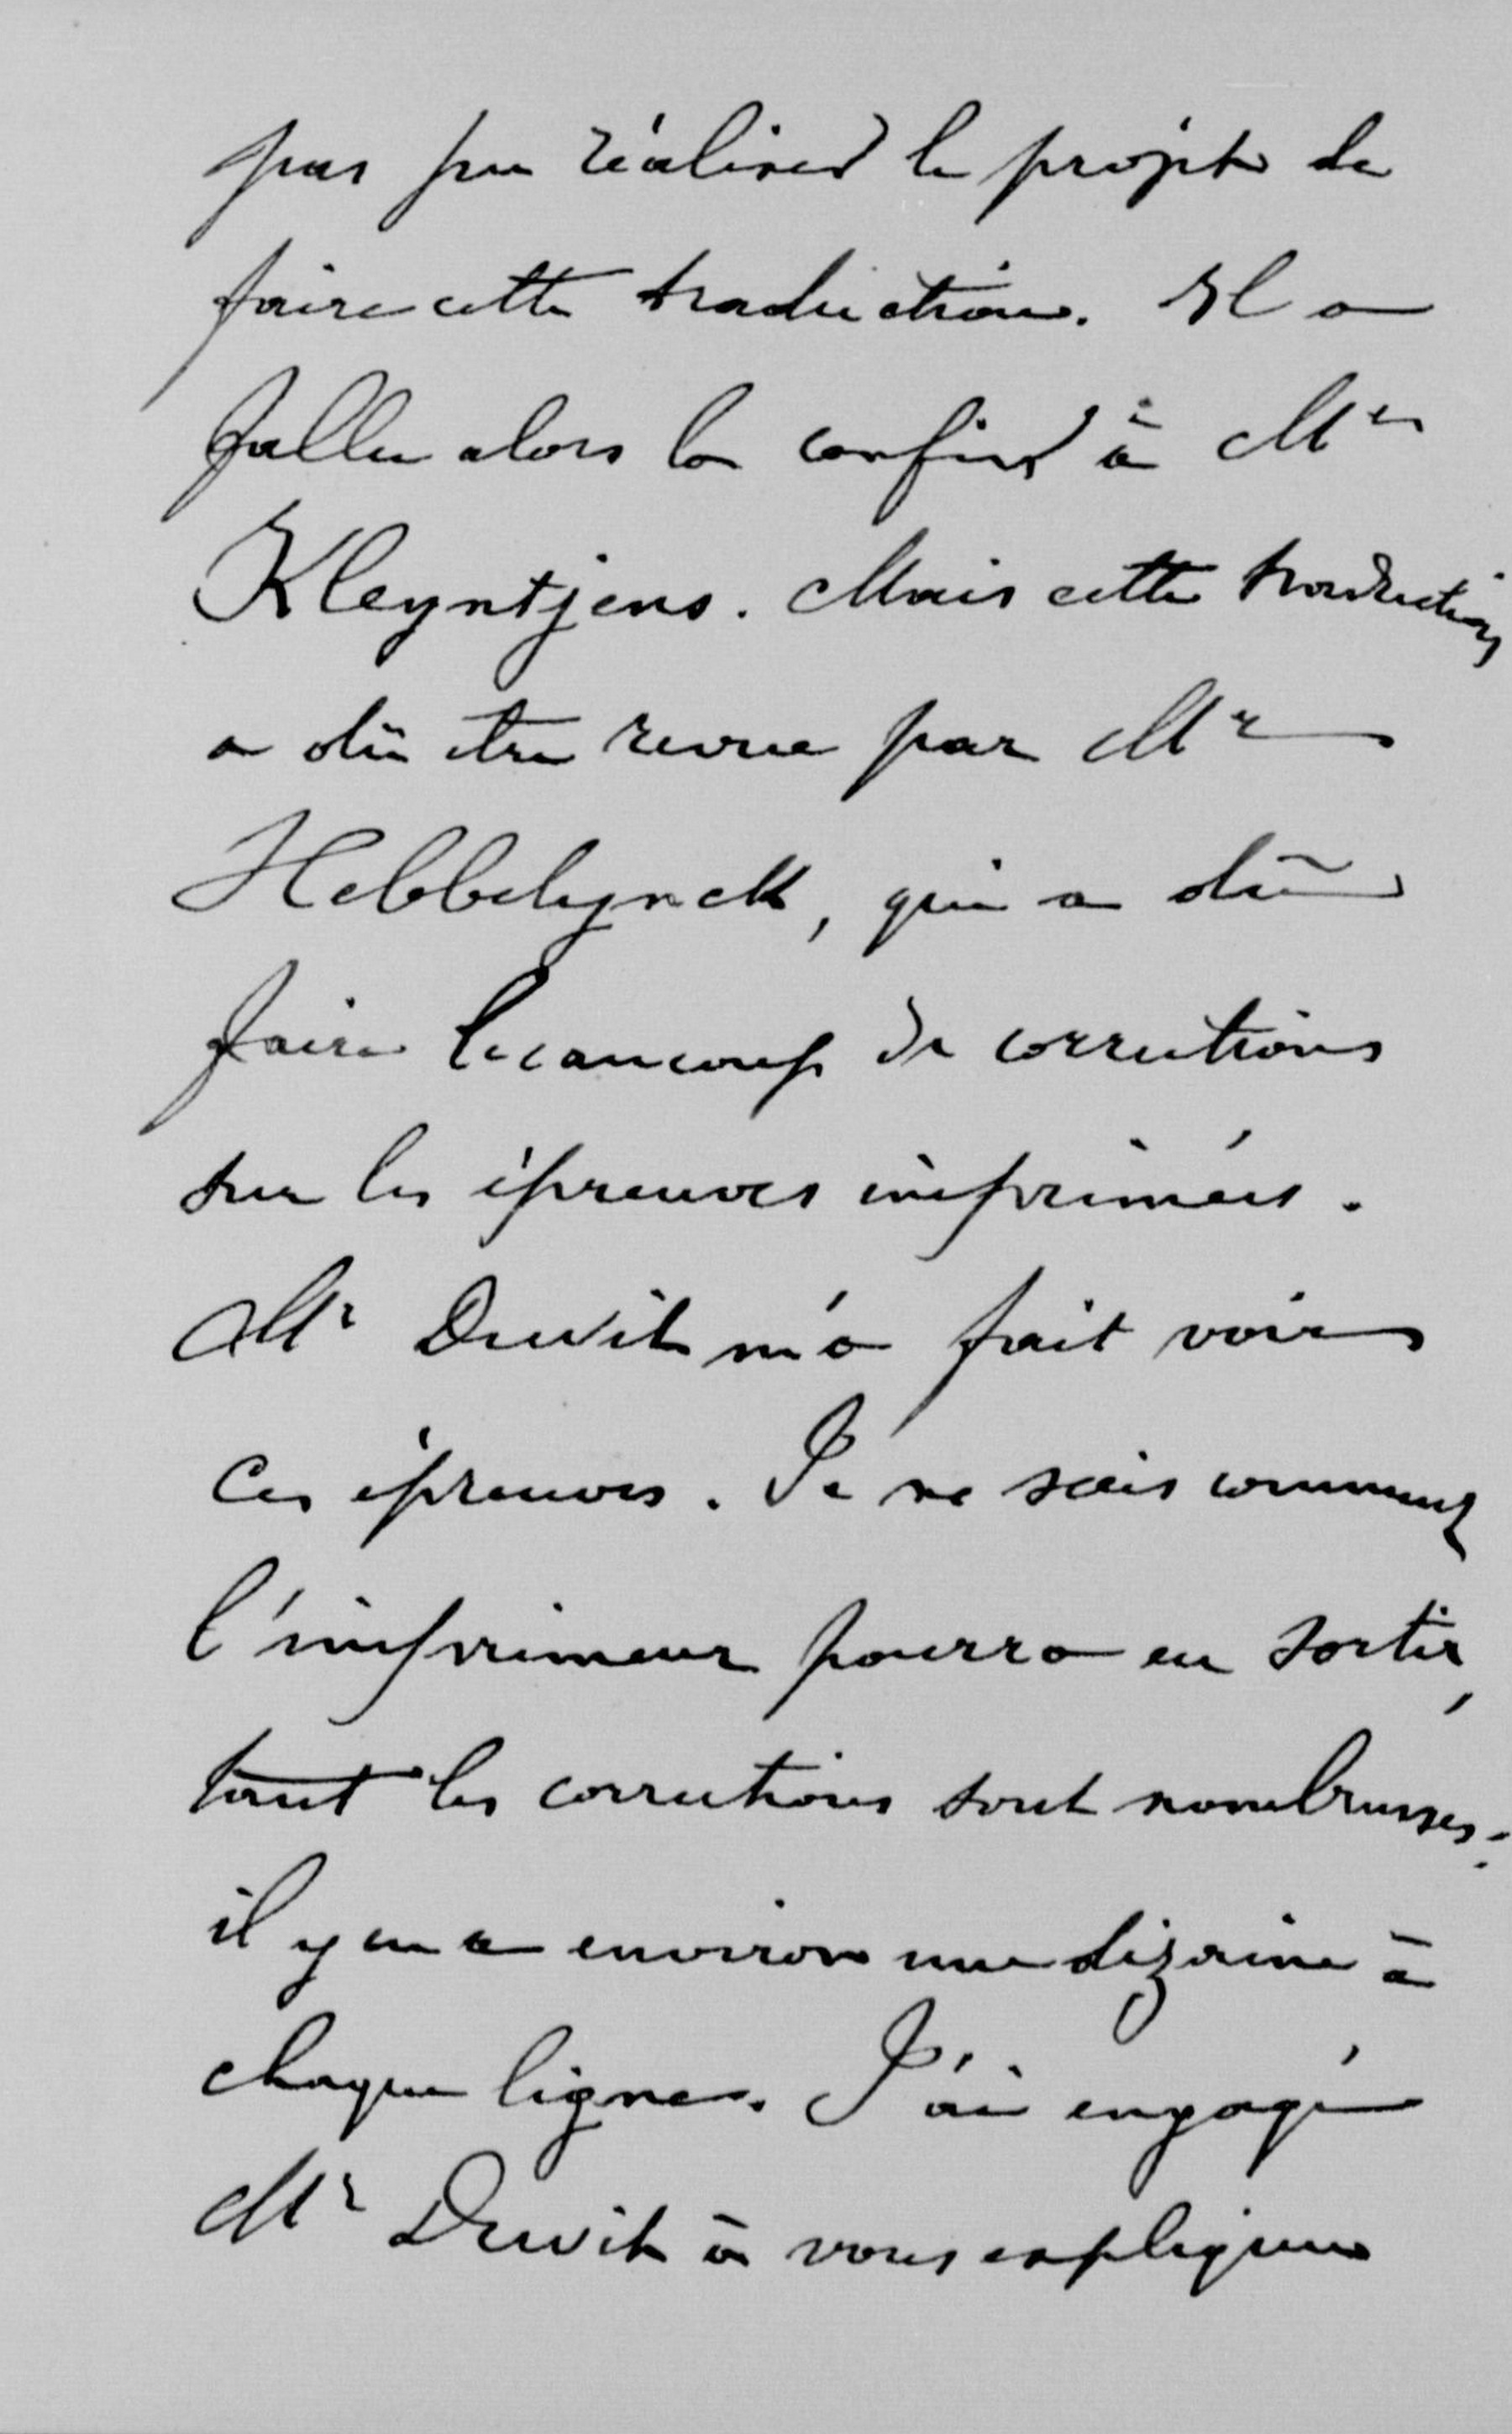 pas pu réaliser le projet de
faire cette traduction. Il a
fallu alors la confier à Mr
Kleyntjens. Mais cette traduction
a dû être revue par Mr
Hebbelynck, qui a dû
faire beaucoup de corrections
sur les épreuves imprimées.
Mr Dewit m'a fait voir
ces épreuves. Je ne sais comment
l'imprimeur pourra en sortir,
tant les corrections sont nombreuses:
il y en a environ une dizaine à
chaque ligne. J'ai engagé
Mr Dewit à vous expliquer